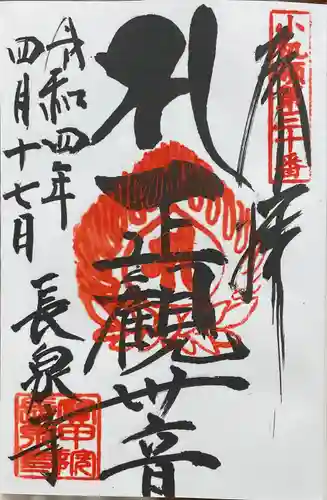 小机領第三十番
奉拝
正観世音
令和四年
四月十七日
長泉寺